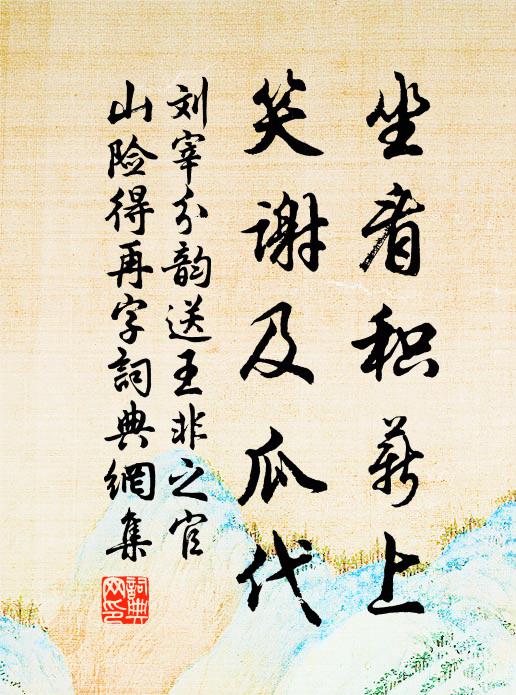 坐看积薪上
笑谢及瓜代
刘宰分韵送王非之官
山险得再字詞典網集
詞典网印